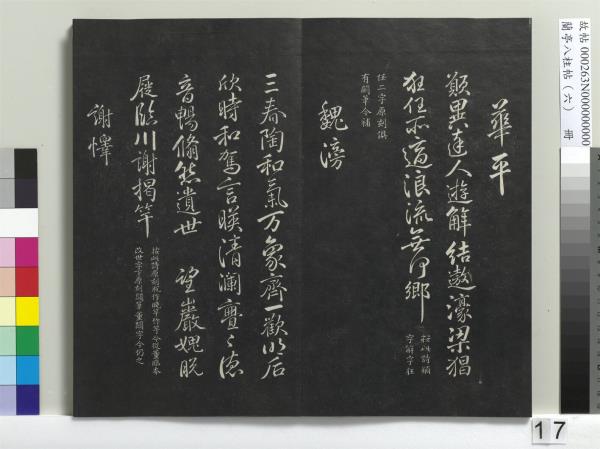 華平
願與達人遊解結遨濠梁狂
狂任所適浪流無何鄉
按此詩補
字解字狂
任二字原刻誤
有闕筆今補
魏滂
三春陶和氣万象齊一歡明后
欣時和駕言映清瀾亹亹德
音暢脩然遺世望巖愧脫
屣臨川謝揭竿
按此詩原刻脫作晚竿作芋今從董臨本
改世字原刻闕筆董闕字今仍之
謝懌
故帖 000263N000000000
蘭亭八柱帖(六) 冊
17